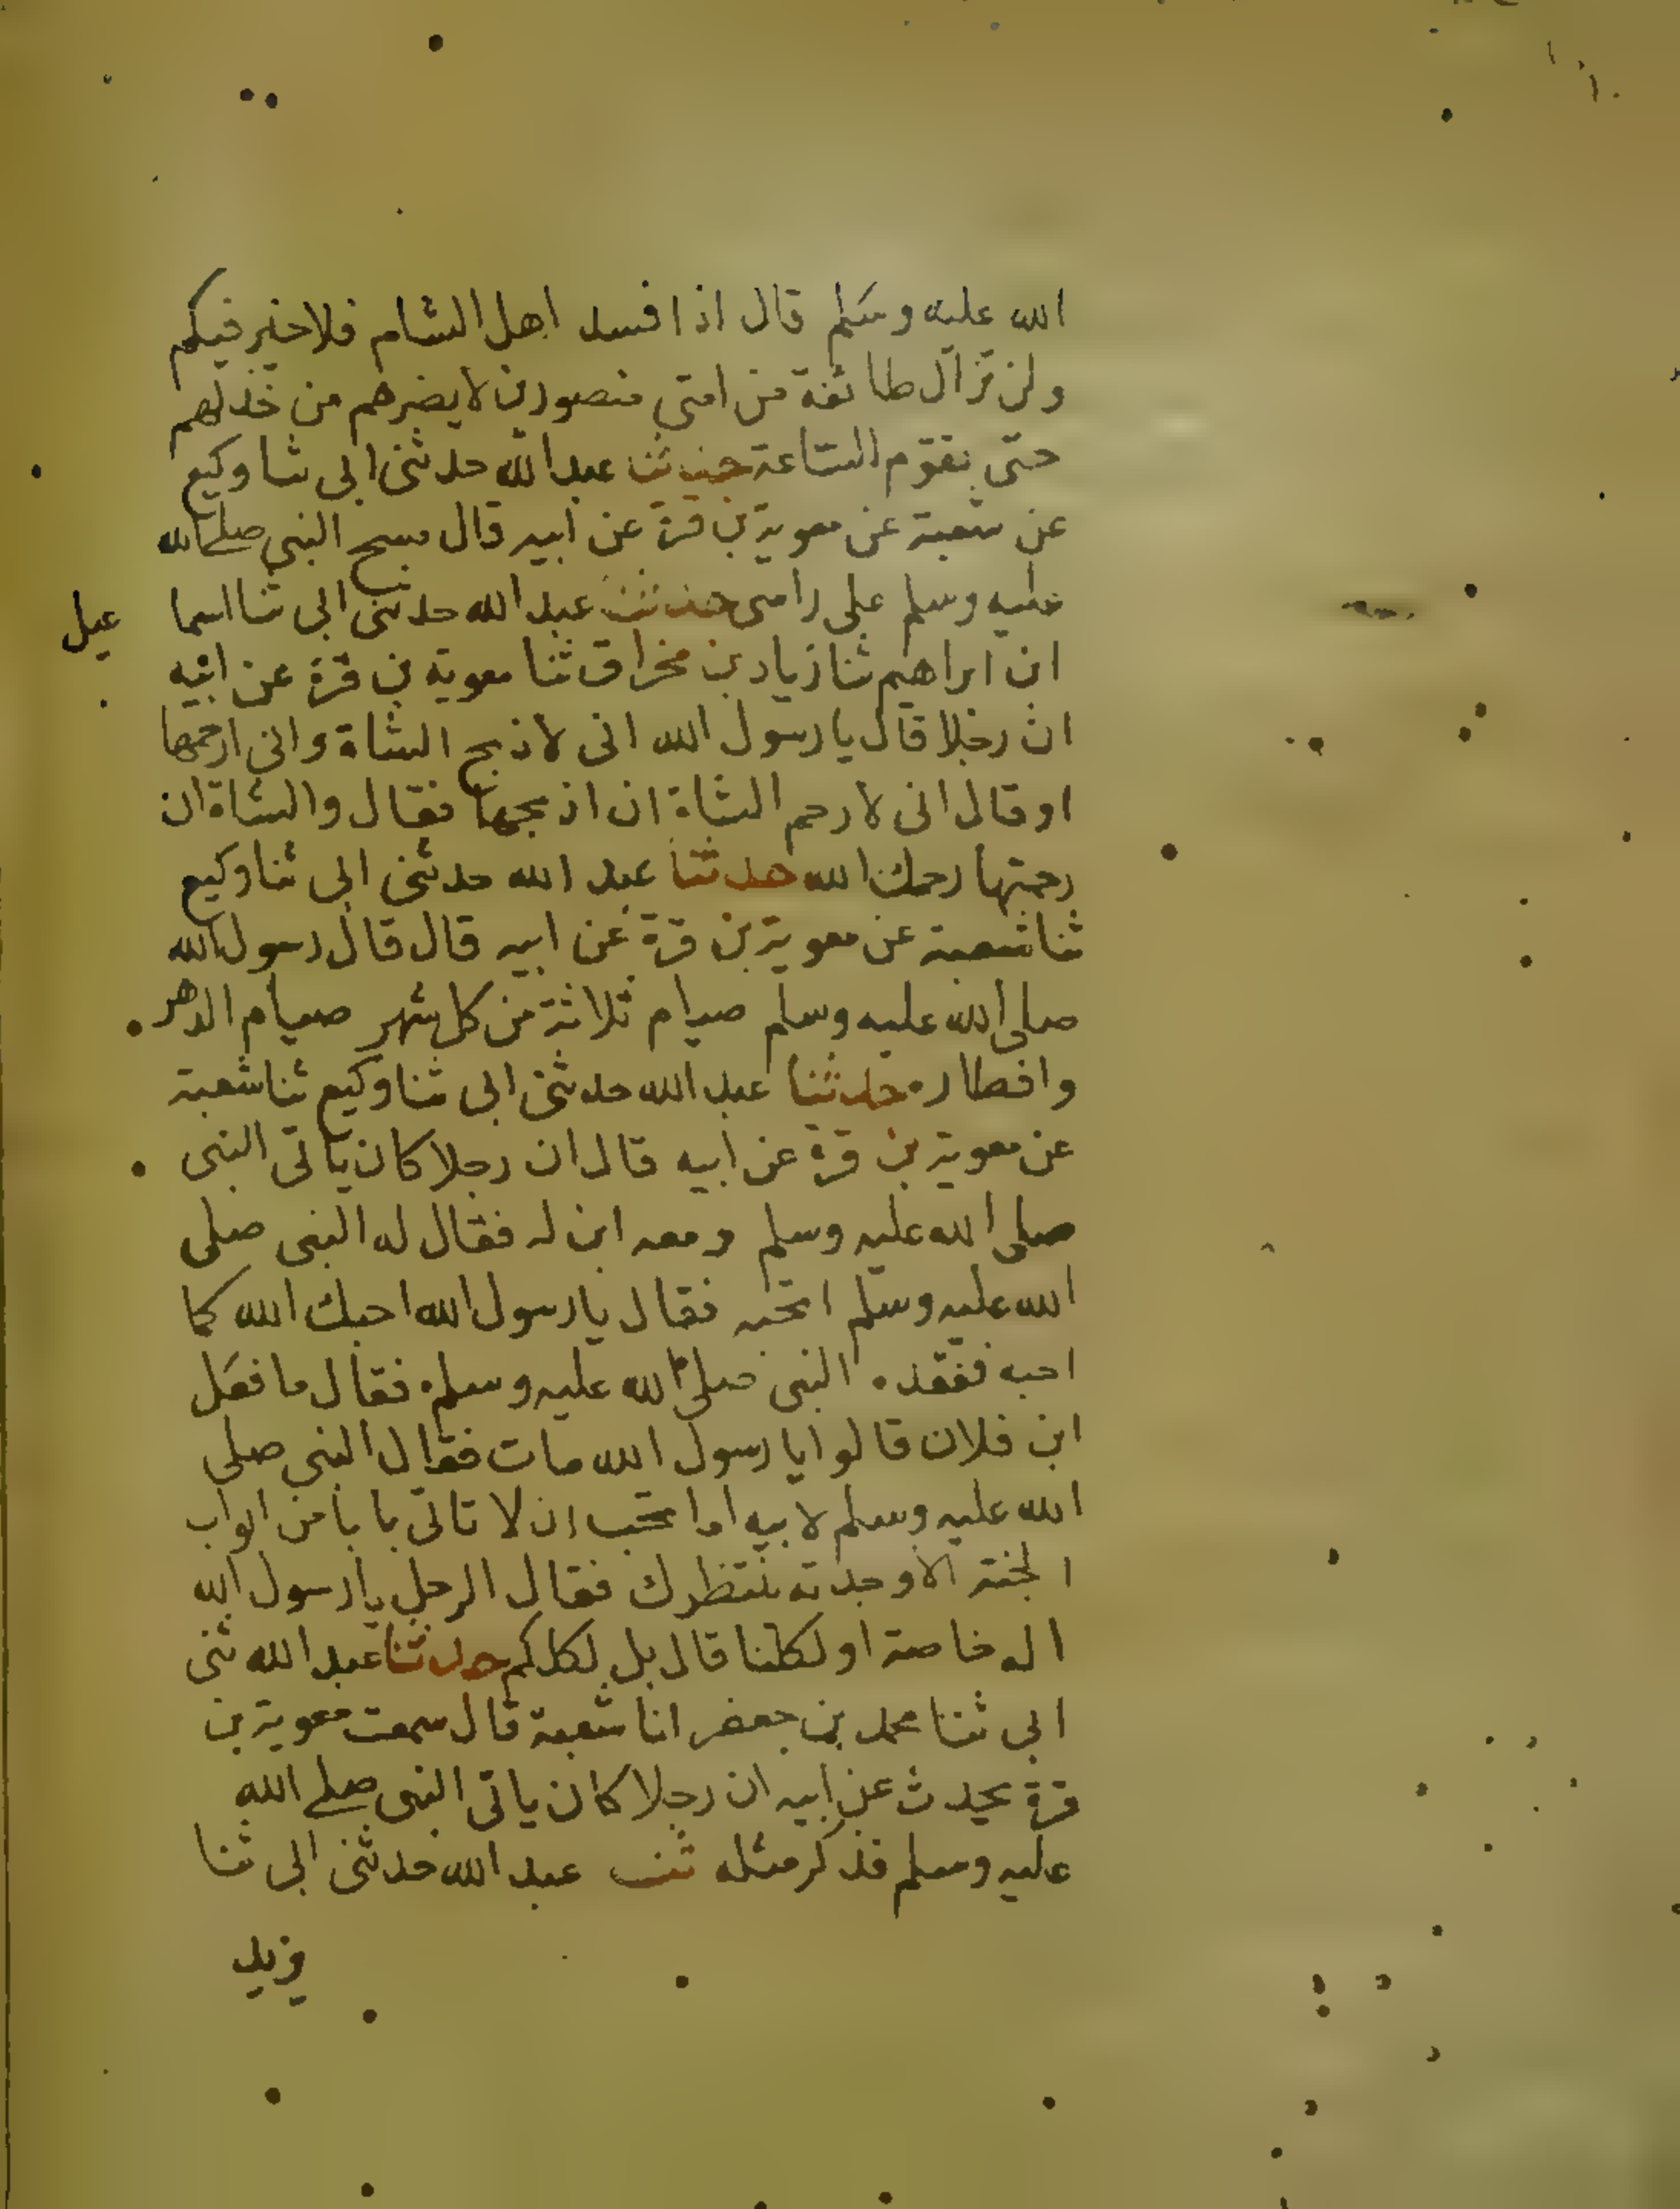 الله عليه وسلم قال اذا فسد اهل الشام فلا خير فيكم
ولن تزال طائفة من امتى منصورين لا يضرهم من خذلهم
حتى تقوم الساعة حدثنا عبد الله حدثنى ابى ثنا وكيع
عن شعبة عن معوية بن قرة عن ابيه قال مسح النبى صلى الله
عليه وسلم على راسى حدثنا عبد الله حدثنى ابى ثنا اسما عيل
ابن ابراهيم ثنا زياد بن مخراق ثنا معوية بن قرة عن ابيه
ان رجلا قال يا رسول الله انى لاذبح الشاة وانى ارحمها
او قال انى لارحم الشاة ان اذبحها فقال والشاة ان
رحمتها رحمك الله حدثنا عبد الله حدثنى ابى ثنا وكيع
ثنا شعبة عن معوية بن قرة عن ابيه قال قال رسول الله
صلى الله عليه وسلم صيام ثلاثة من كل شهر صيام الدهر
وافطاره حدثنا عبد الله حدثنى ابى ثنا وكيع ثنا شعبة
عن معوية بن قرة عن ابيه قال ان رجلا كان ياتى النبى
صلى الله عليه وسلم ومعه ابن له فقال له النبى صلى
الله عليه وسلم اتحبه فقال يا رسول الله احبك الله كما
احبه ففقده النبى صلى الله عليه وسلم فقال ما فعل
ابن فلان قالوا يا رسول الله مات فقال النبى صلى
الله عليه وسلم لابيه اما تحب ان لا تاتى بابا من ابواب
الجنة الا وجدته ينتظرك فقال الرجل يا رسول الله
اله خاصة او لكلنا قال بل لكلكم حدثنا عبد الله ثنى
ابى ثنا محمد بن جعفر انا شعبة قال سمعت معوية بن
قرة يحدث عن ابيه ان رجلا كان ياتى النبى صلى الله
عليه وسلم فذكر مثله ثنا عبد الله حدثنى ابى ثنا
يزيد